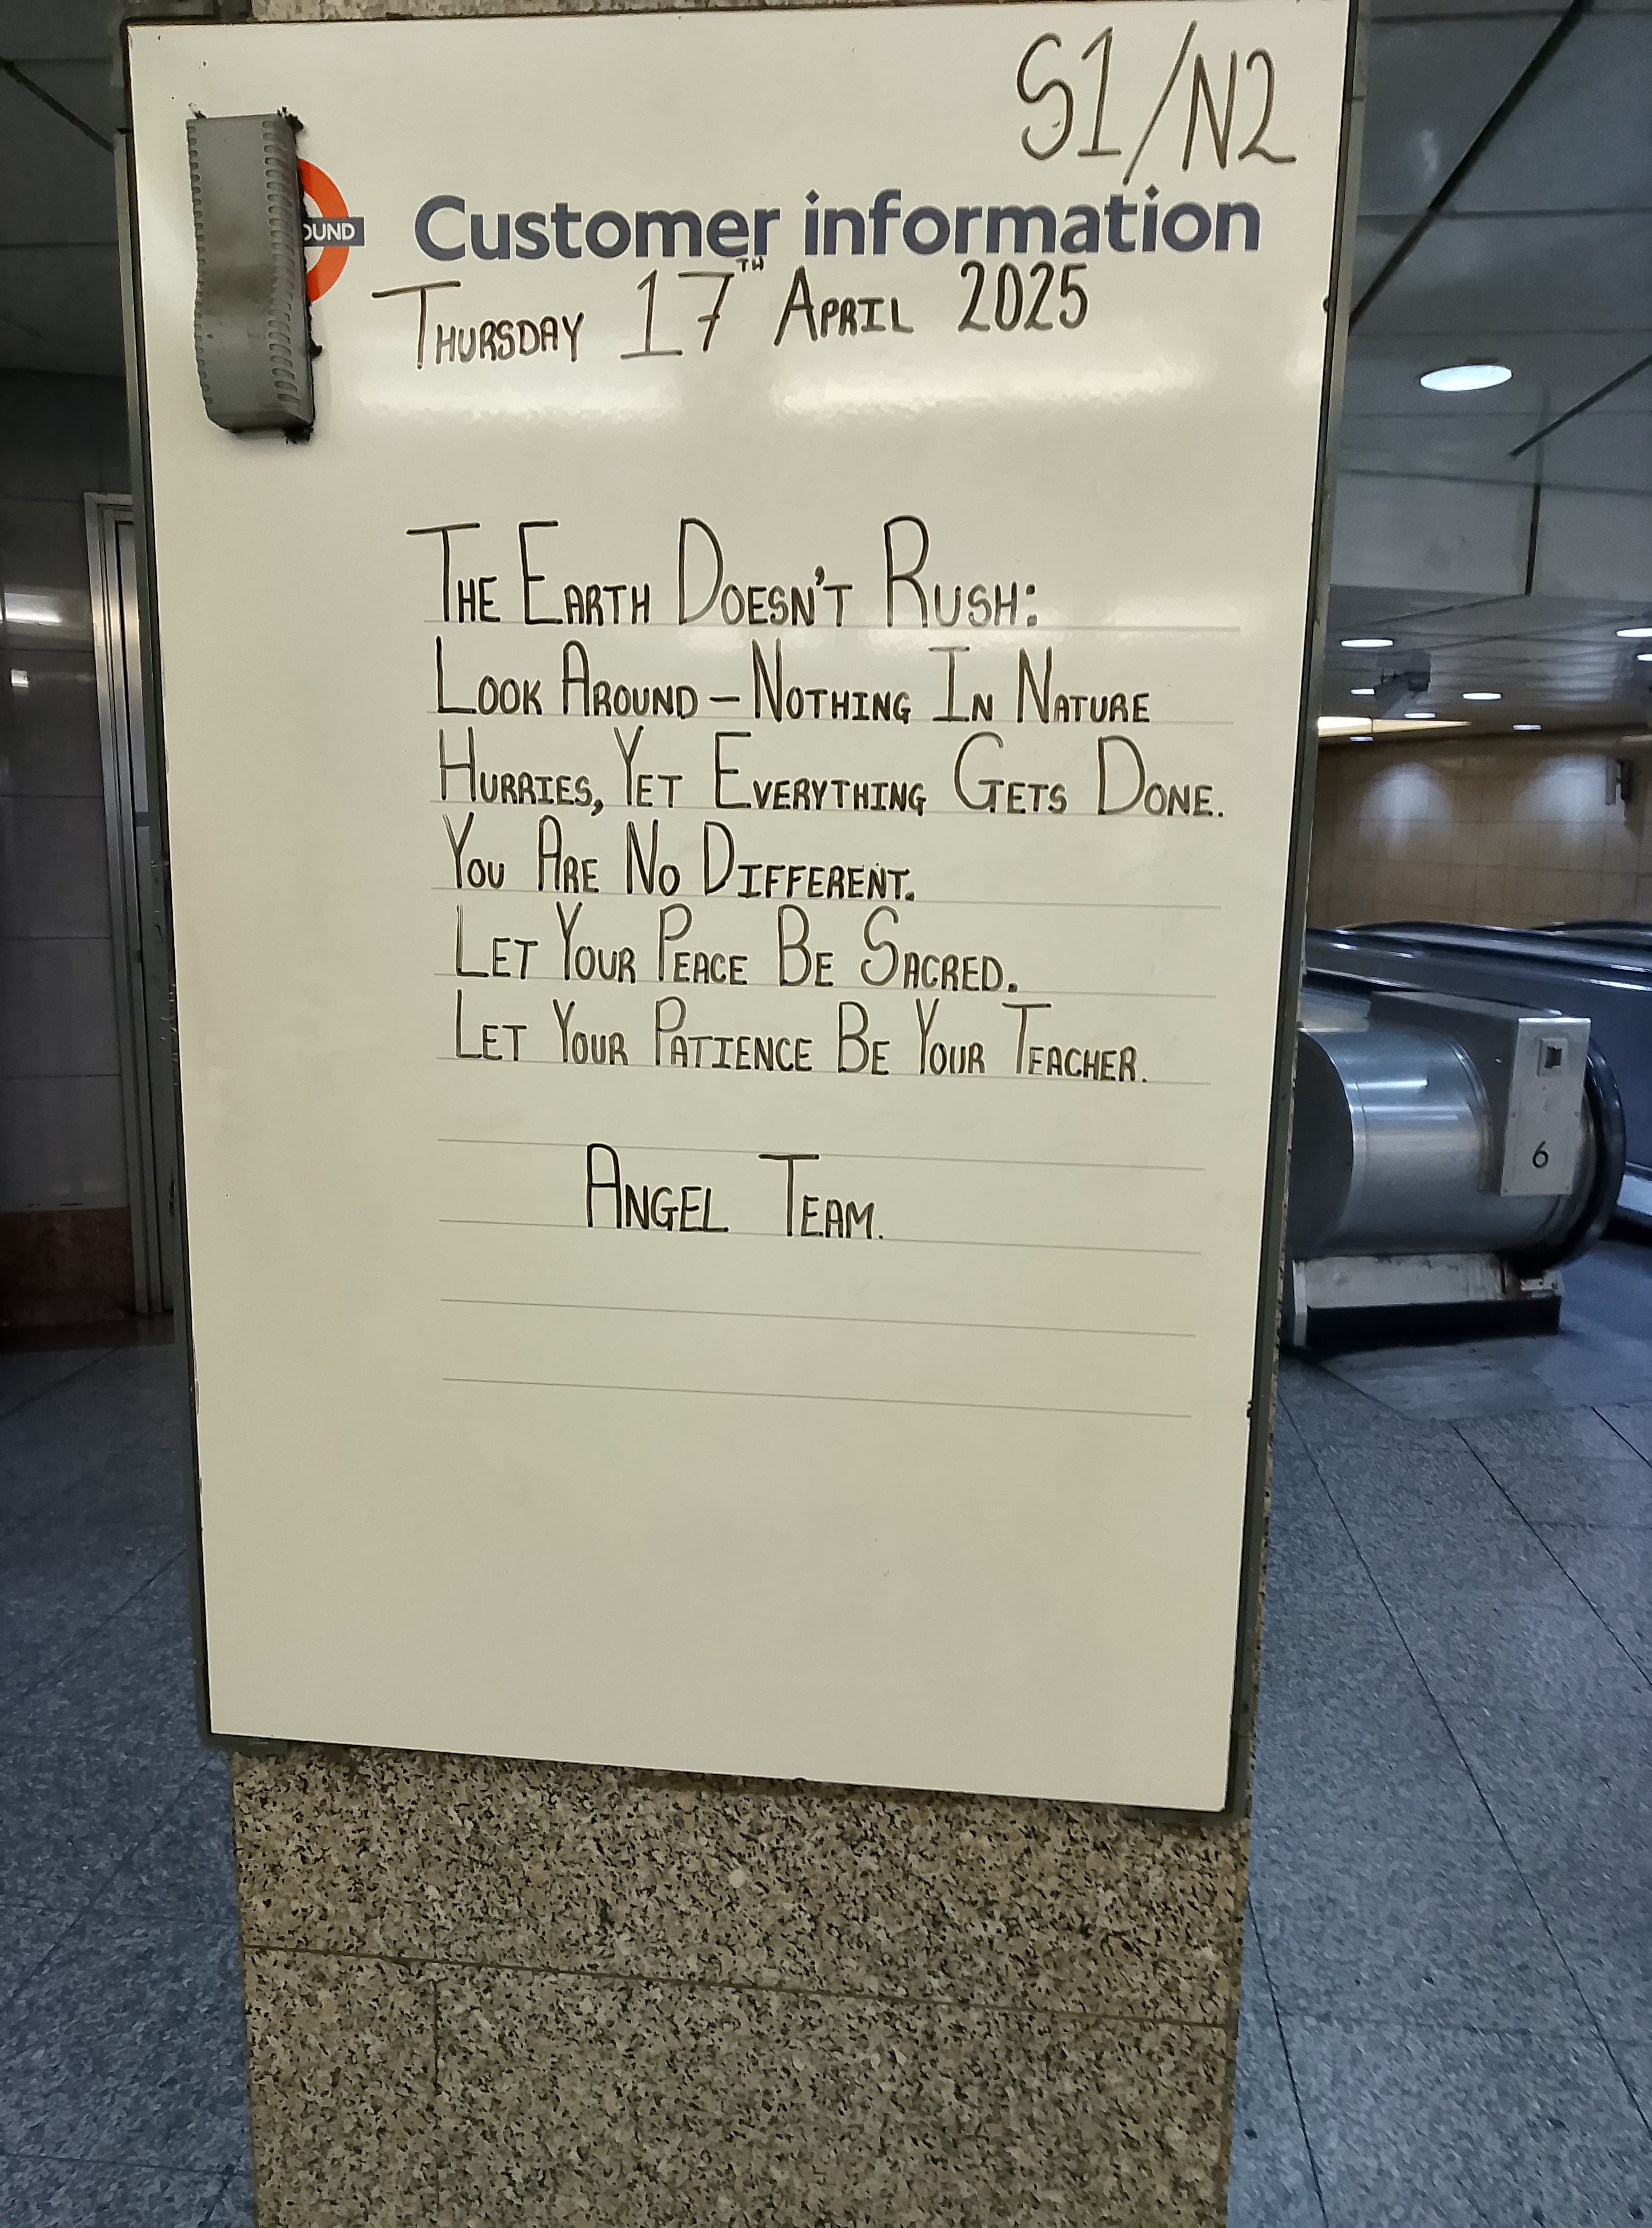 S1/N2
OUND
Customer information
THURSDAY 17TH APRIL 2025
THE EARTH DOESN'T RUSH:
LOOK AROUND – NOTHING IN NATURE
HURRIES, YET EVERYTHING GETS DONE.
YOU ARE NO DIFFERENT.
LET YOUR PEACE BE SACRED.
LET YOUR PATIENCE BE YOUR TEACHER.
ANGEL TEAM.
6